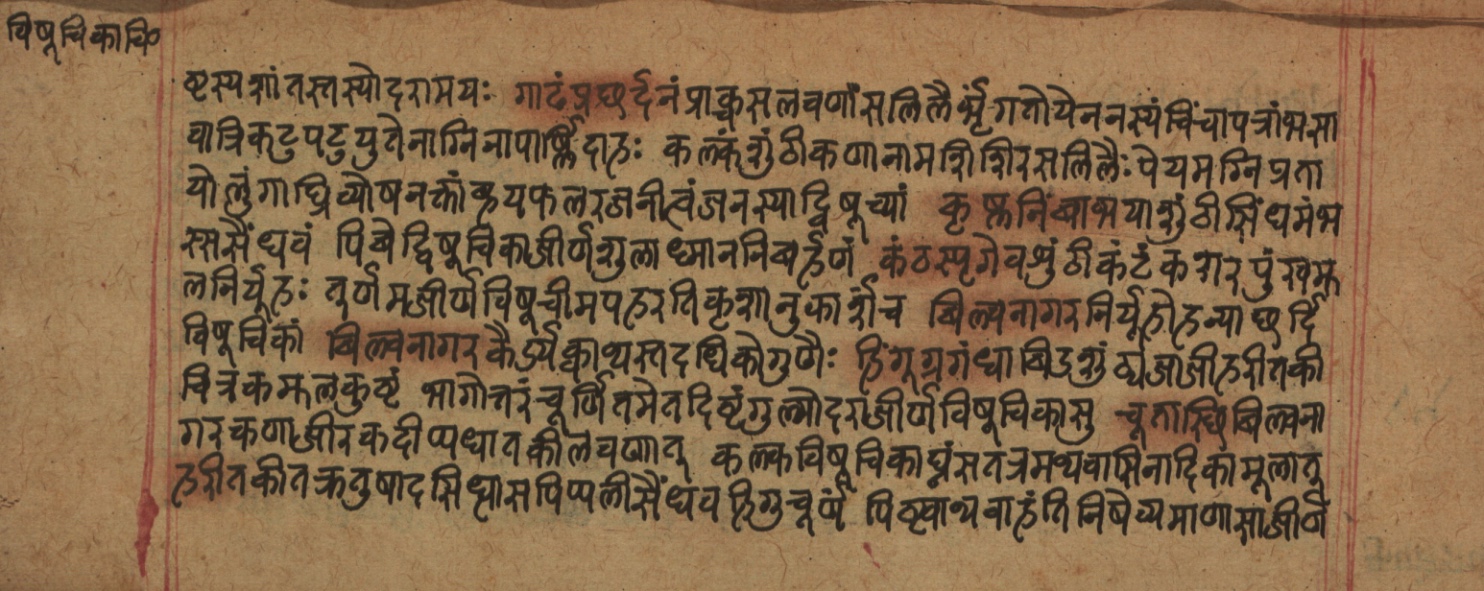 विषूचिकाचि०
ष्टस्यशांतस्तस्योदरामयः गाढंप्रछर्दनंप्राक्चसलवणंसलिलैर्भृंगतोयेननस्यंचिंचापत्रांभसा
वात्रिकटुपटुयुतेनाग्निनापार्ष्णिदाहः कल्कंशुंठीकणानामशिशिरसलिलैःपेयमग्निप्रता
योलुंगाघ्रिव्योषनक्तांह्वयफलरजनीत्वंजनस्याद्विषूच्यां कृष्णनिंबाभयाशुंठीसिंधमंभ
स्ससैंधवं पिबेद्विषूचिकाजीर्णशुलाध्माननिबर्हणं कंठस्पृगेवशुंठीकंटंकशरपुंखमू
लनिर्यूहः तूर्णमजीर्णविषूचीमपहरतिकृशानुकार्शंच बिल्वनागरनिर्यूहोहन्याछर्दि
विषूचिकां बिल्वनागरकैडर्यक्वाथस्तदधिकोगुणैः हिंगूग्रगंधाबिडशुंठ्यजाजीहरीतकी
चित्रकमूलकुष्टं भागोत्तरंचूर्णितमेतदिष्टंगुल्मोदराजीर्णविषूचिकासु चूतास्थिबिल्वना
गरकणाजीरकदीप्यधातकीलवणात् कल्कविषूचिकाघ्नंसतत्रमथवासिनादिकामूलात्
हरीतकीतक्रतुषादसिध्मासपिप्पलीसैंधवहिंगुचूर्णं पिष्ट्वाथवाहंतिनिषेव्यमाणासाजीर्ण